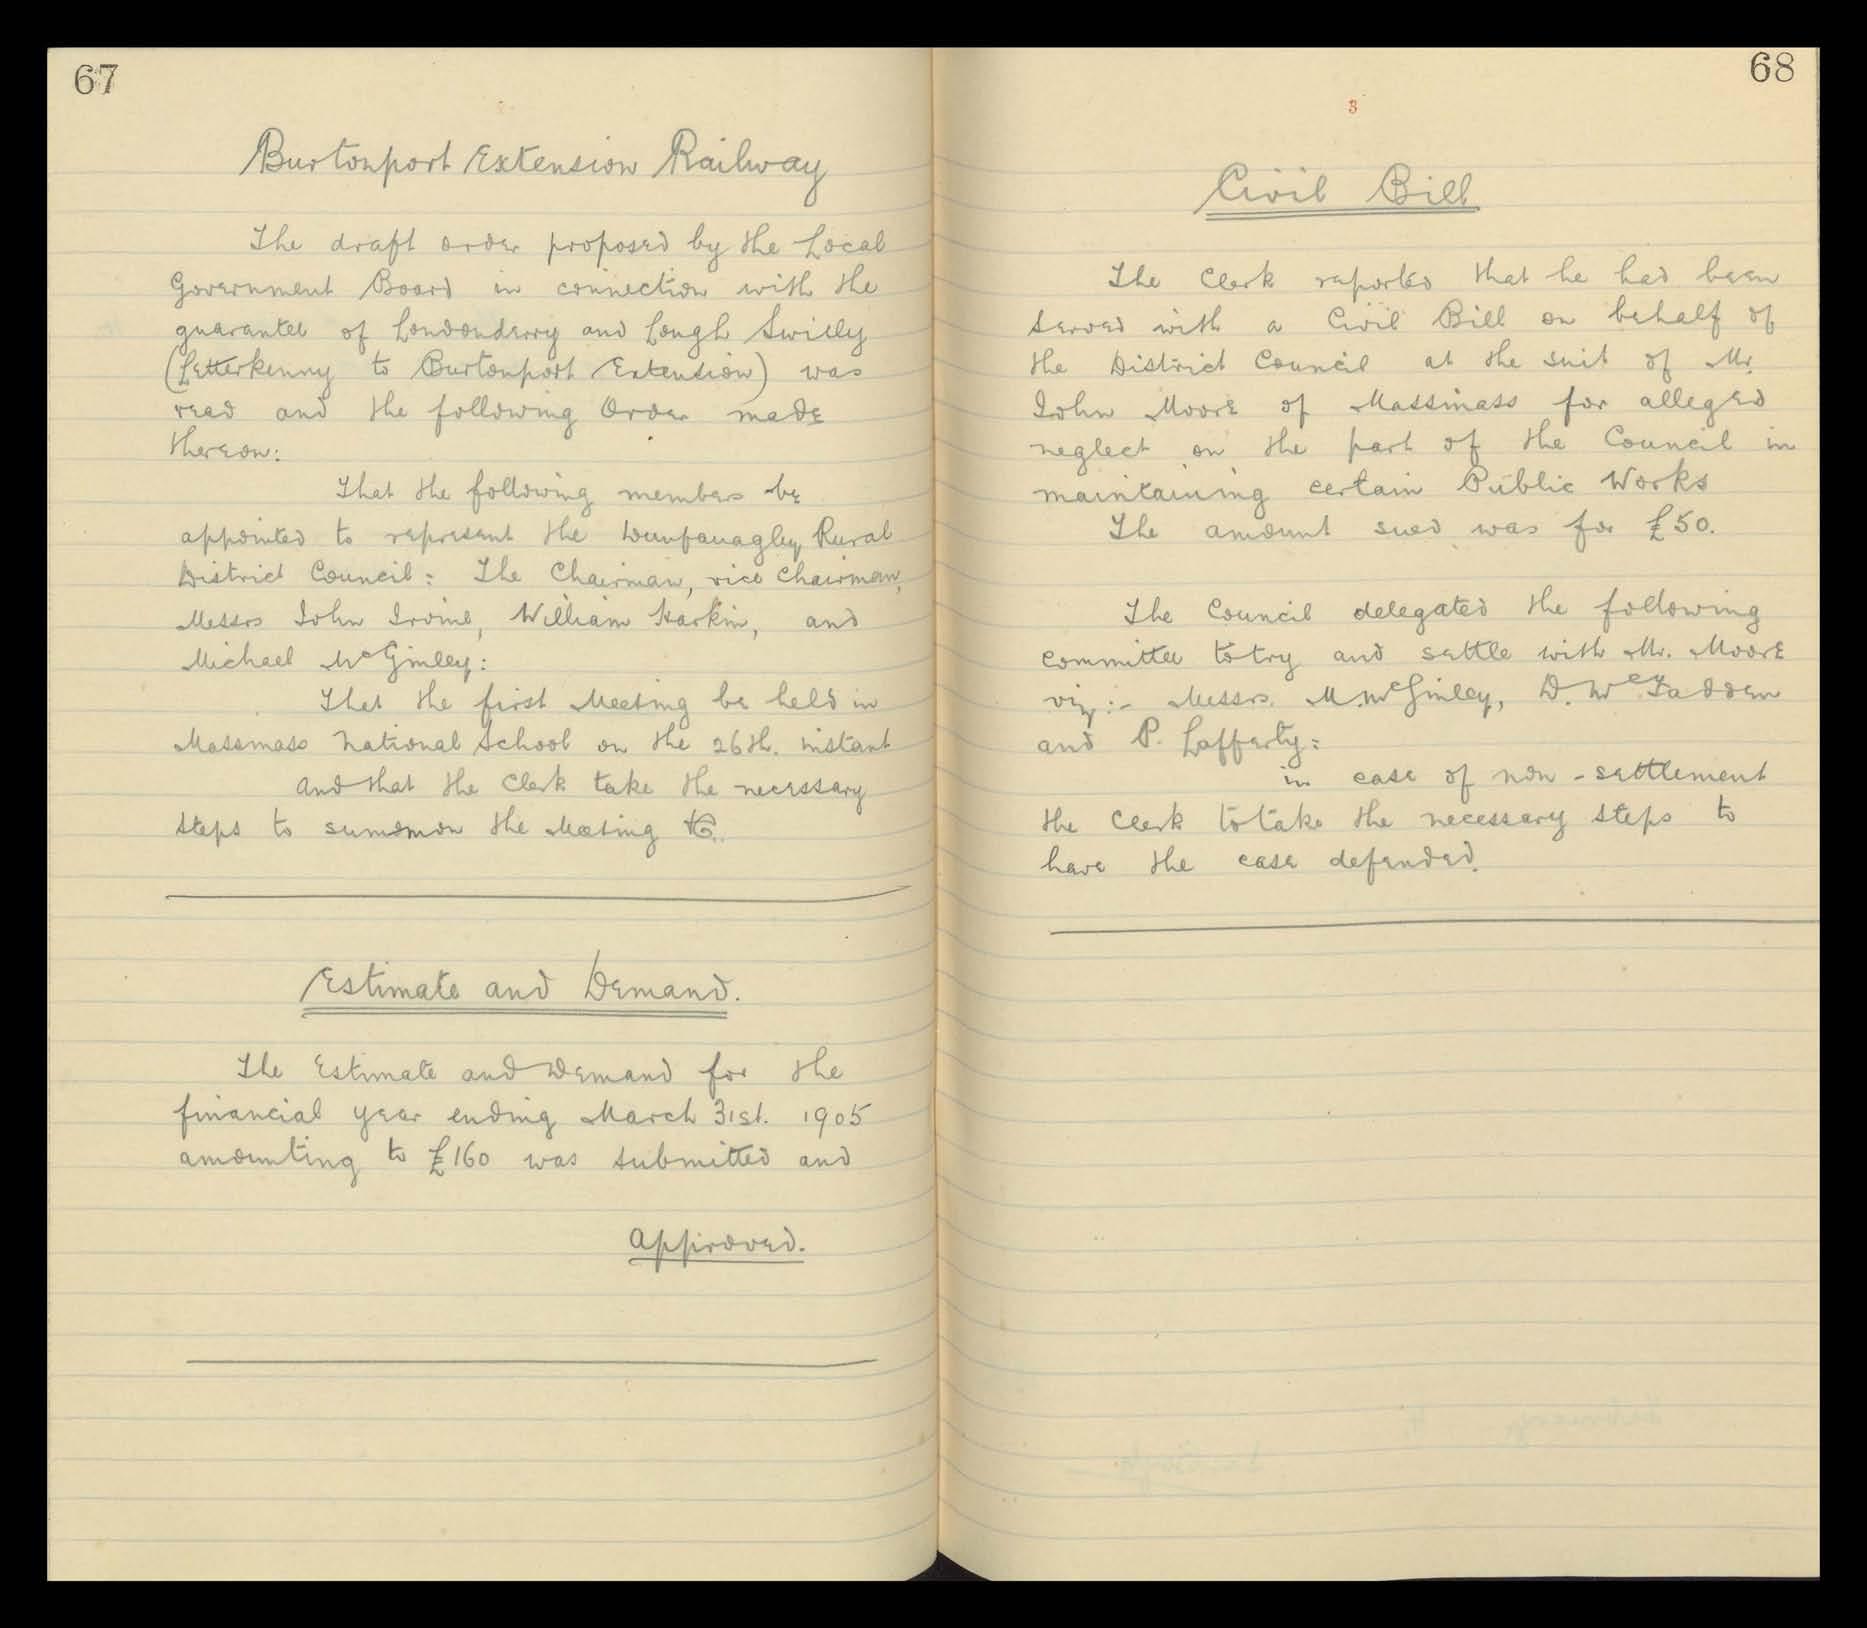 67
Burtonport Extension Railway
The draft order proposed by the Local
Government Board in connection with the
guarantee of Londonderry and Lough Swilly
(Letterkenny to Burtonport Extension) was
read and the following Order made
thereon:
That the following members be
appointed to represent the Dunfanaghy Rural
District Council: The Chairman, vice Chairman,
Messrs John Irvine, William Harkin, and
Michael McGinley:
That the first Meeting be held in
Massmass National School on the 26th. instant
and that the Clerk take the necessary
steps to summon the Meeting &c.
Estimate and Demand.
The Estimate and Demand for the
financial year ending March 31st. 1905
amounting to £160 was submitted and
Approved.
68
3
Civil Bill
The Clerk reported that he had been
served with a Civil Bill on behalf of
the District Council at the suit of Mr.
John Moore of Massinass for alleged
neglect on the part of the Council in
maintaining certain Public Works
The amount sued was for £50.
The Council delegated the following
committee to try and settle with Mr. Moore
viz:- Messrs. M. McGinley, D. McFadden
and P. Lafferty:
in case of non-settlement
the Clerk to take the necessary steps to
have the case defended.